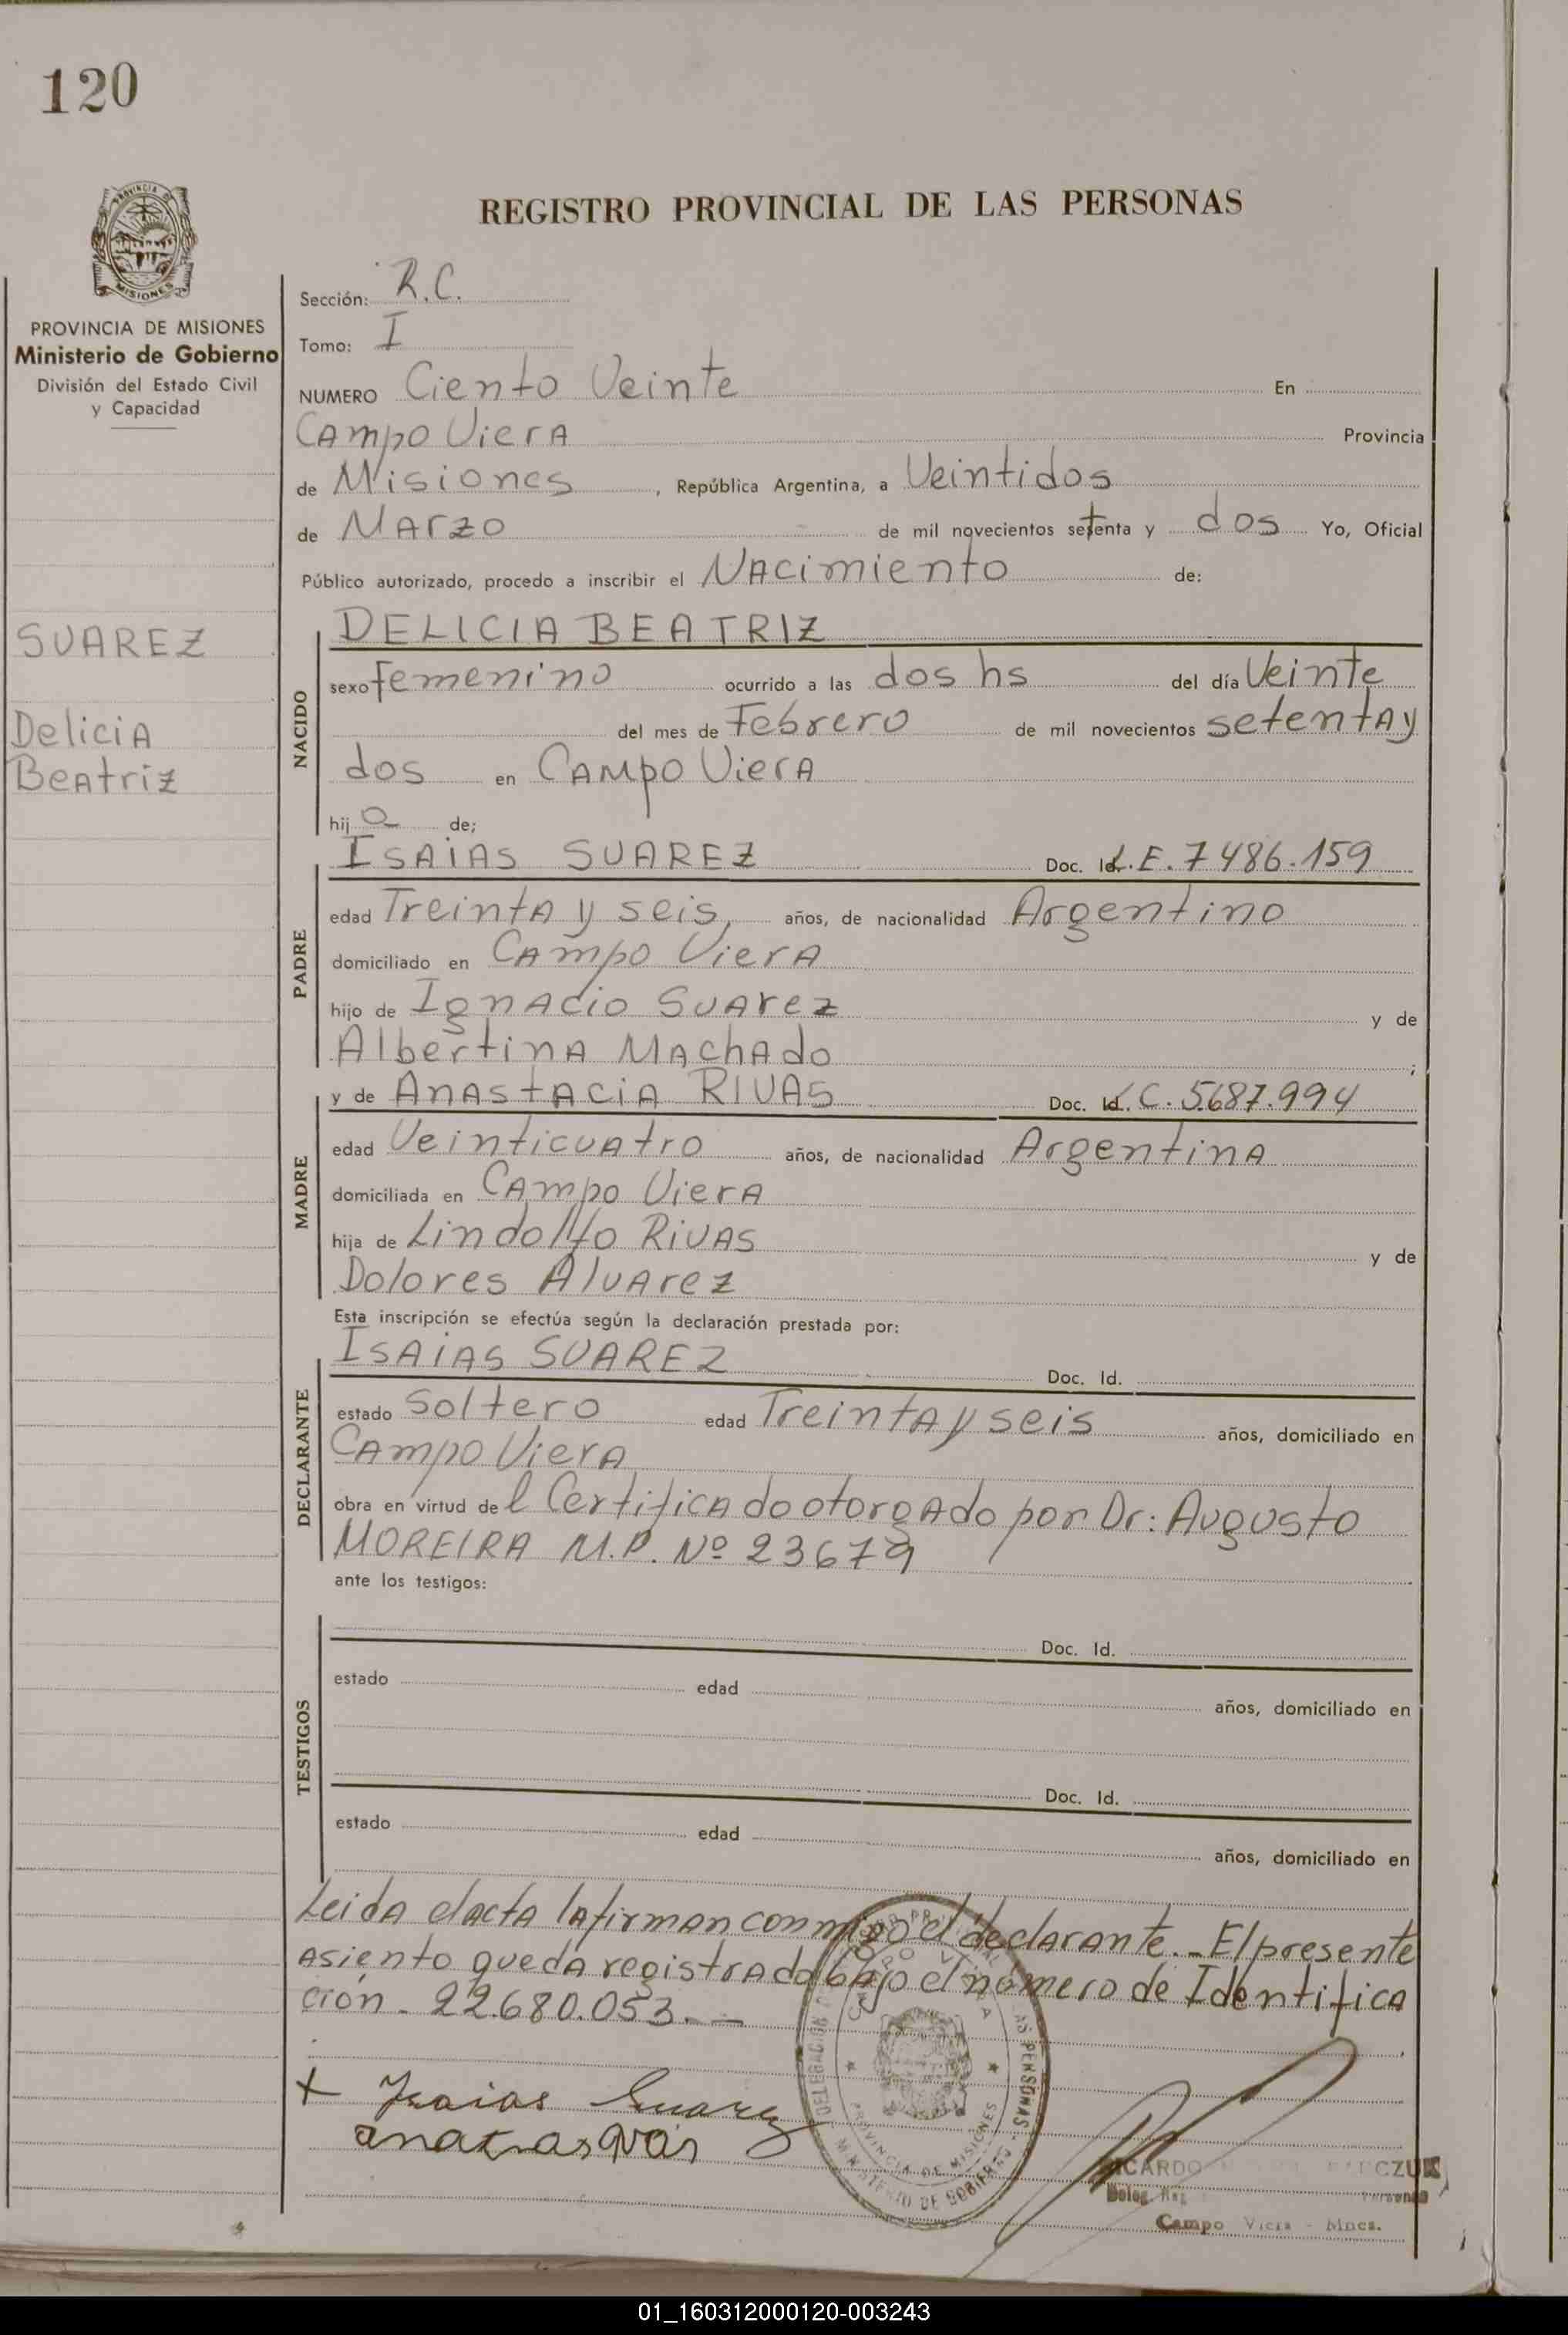 120
PROVINCIA DE MISIONES
PROVINCIA DE MISIONES
Ministerio de Gobierno
División del Estado Civil
y Capacidad
SUAREZ
Delicia
Beatriz
REGISTRO PROVINCIAL DE LAS PERSONAS
Sección: R.C.
Tomo: I
NUMERO Ciento Veinte En
Campo Viera Provincia
de Misiones, República Argentina, a Veintidos
de Marzo de mil novecientos setenta y dos Yo, Oficial
Público autorizado, procedo a inscribir el Nacimiento de:
NACIDO
DELICIA BEATRIZ
sexo femenino ocurrido a las dos hs del día Veinte
del mes de Febrero de mil novecientos setenta y
dos en Campo Viera
hija de;
PADRE
ISAIAS SUAREZ Doc. Id. L.E. 7486.159
edad Treinta y seis, años, de nacionalidad Argentino
domiciliado en Campo Viera
hijo de Ignacio Suarez y de
Albertina Machado ;
MADRE
y de Anastacia RIVAS Doc. Id. L.C. 5.687.994
edad Veinticuatro años, de nacionalidad Argentina
domiciliada en Campo Viera
hija de Lindolfo Rivas y de
Dolores Alvarez
Esta inscripción se efectúa según la declaración prestada por:
DECLARANTE
ISAIAS SUAREZ Doc. Id.
estado soltero edad Treinta y seis años, domiciliado en
Campo Viera
obra en virtud del Certificado otorgado por Dr: Augusto
MOREIRA M.P. Nº 23679
ante los testigos:
TESTIGOS
Doc. Id.
estado edad años, domiciliado en
Doc. Id.
estado edad años, domiciliado en
Leida el acta la firman conmigo el declarante._ El presente
asiento queda registrado bajo el número de Identifica
ción - 22.680.053.-
+ Isaias Suarez
DELEGACION PERSONAS
CAMPO VIERA
PROVINCIA DE MISIONES
MINISTERIO DE GOBIERNO
RICARDO CZUK
Deleg. Reg. Personas
Campo Viera - Mnes.
01_160312000120-003243